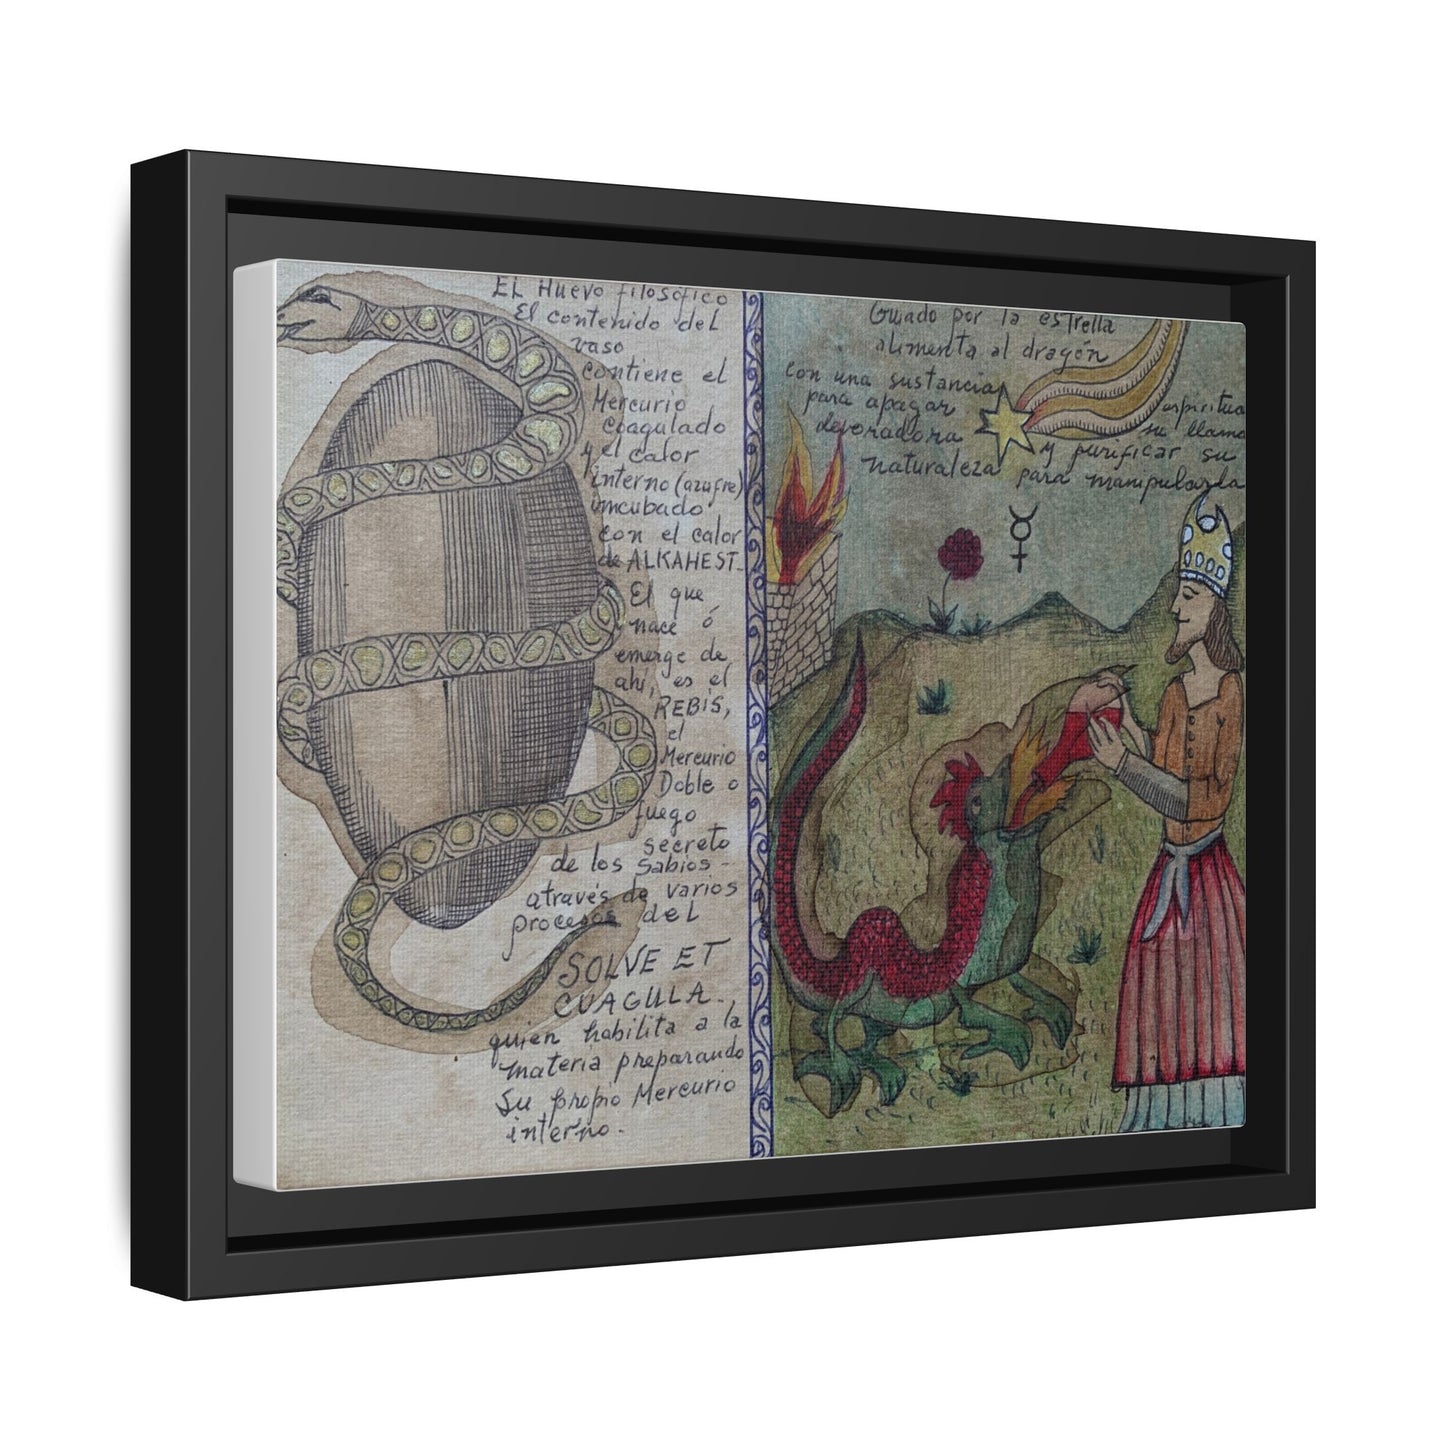 EL Huevo filosófico
El contenido del
vaso
contiene el
Mercurio
coagulado
y el calor
interno (azufre)
incubado
con el calor
de ALKAHEST_
El que
nace ó
emerge de
ahí, es el
REBIS,
el
Mercurio
Doble o
fuego
secreto
de los Sabios -
através de varios
procesos del
SOLVE ET
CUAGULA.
quien habilita a la
materia preparando
Su propio Mercurio
interno.
Guiado por la estrella
alimenta al dragón
con una sustancia espiritua
para apagar su llama
devoradora y purificar su
naturaleza para manipularla
☿